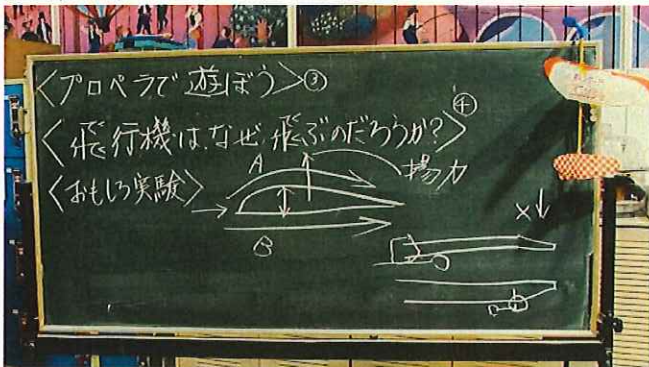 <プロペラで遊ぼう>③
<飛行機は、なぜ飛ぶのだろうか?>④
<おもしろ実験>
A
揚力
B
×↓